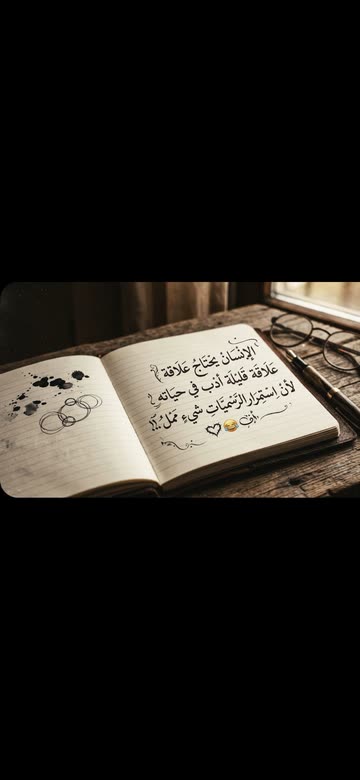 الإنْسَانُ يَحْتَاجُ عَلَاقَة
عَلَاقَة قَلِيلَة أدَب في حَيَاتِه
لأنْ اِسْتِمْرَار الرَّسْمِيَّاتِ شَيْءٍ مُمَلْ..!؟